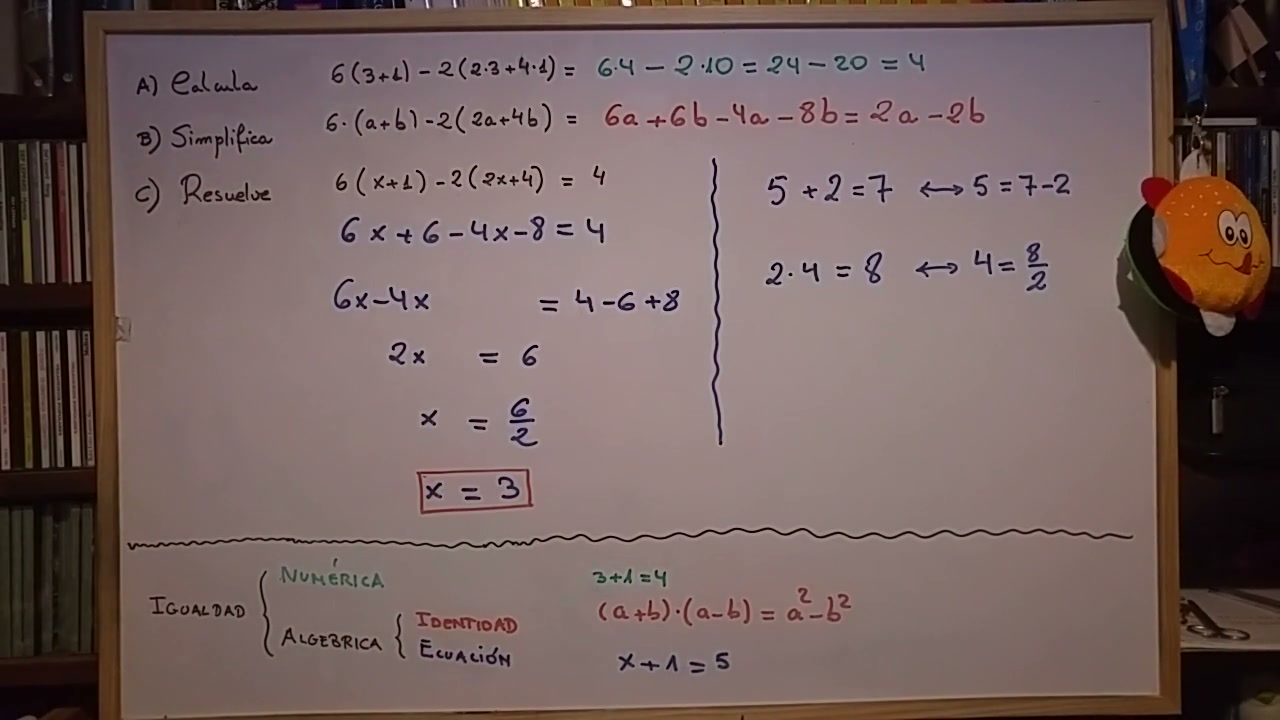 A) Calcula 6(3+1) - 2(2·3+4·1) = 6·4 - 2·10 = 24 - 20 = 4
B) Simplifica 6·(a+b) - 2(2a+4b) = 6a+6b-4a-8b = 2a-2b
C) Resuelve 6(x+1) - 2(2x+4) = 4
6x+6-4x-8 = 4
6x-4x = 4-6+8
2x = 6
x = 6/2
x = 3
5+2=7 ↔ 5=7-2
2·4=8 ↔ 4=8/2
IGUALDAD { NUMÉRICA 3+1=4
ALGEBRICA { IDENTIDAD (a+b)·(a-b) = a²-b²
ECUACIÓN x+1=5